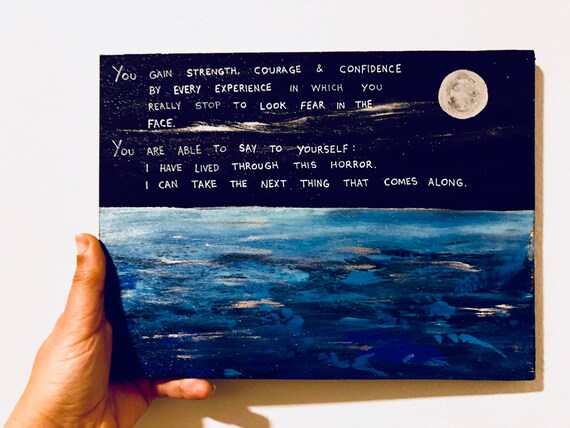 YOU GAIN STRENGTH, COURAGE & CONFIDENCE
BY EVERY EXPERIENCE IN WHICH YOU
REALLY STOP TO LOOK FEAR IN THE
FACE.
YOU ARE ABLE TO SAY TO YOURSELF:
I HAVE LIVED THROUGH THIS HORROR.
I CAN TAKE THE NEXT THING THAT COMES ALONG.